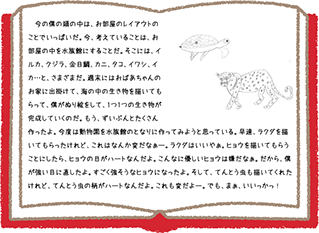 今の僕の頭の中は、お部屋のレイアウトの
ことでいっぱいだ。今、考えていることは、お
部屋の中を水族館にすることだ。そこには、イ
ルカ、クジラ、金目鯛、カニ、タコ、イワシ、イ
カ…と、さまざまだ。週末にはおばあちゃんの
お家に出掛けて、海の中の生き物を描いても
らって、僕がぬり絵をして、1つ1つの生き物が
完成していくのだ。もう、ずいぶんとたくさん
作ったよ。今度は動物園を水族館のとなりに作ってみようと思っている。早速、ラクダを描
いてもらったけれど、これはなんか変だなぁー。ラクダはいいやぁ。ヒョウを描いてもらう
ことにしたら、ヒョウの目がハートなんだよ。こんなに優しいヒョウは嫌だなぁ。だから、僕
が強い目に直したよ。すごく強そうなヒョウになったよ。そして、てんとう虫も描いてくれた
けれど、てんとう虫の柄がハートなんだよ。これも変だよー。でも、まぁ、いいっかっ!